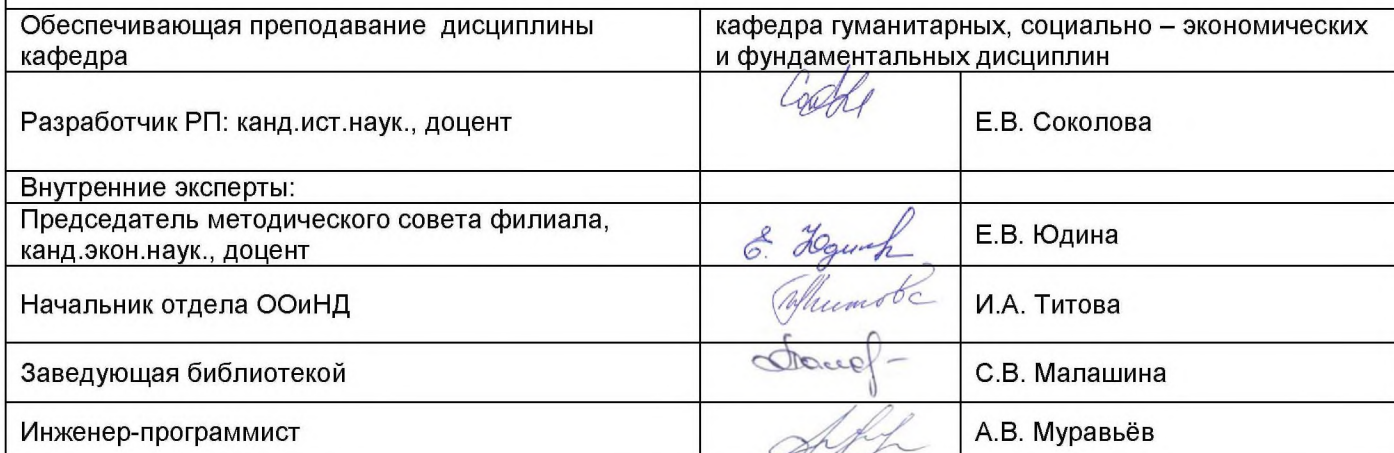 Обеспечивающая преподавание дисциплины
кафедра
кафедра гуманитарных, социально – экономических
и фундаментальных дисциплин
Разработчик РП: канд.ист.наук., доцент
Е.В. Соколова
Внутренние эксперты:
Председатель методического совета филиала,
канд.экон.наук., доцент
Е. Юдина
Е.В. Юдина
Начальник отдела ООиНД
И.А. Титова
Заведующая библиотекой
С.В. Малашина
Инженер-программист
А.В. Муравьёв